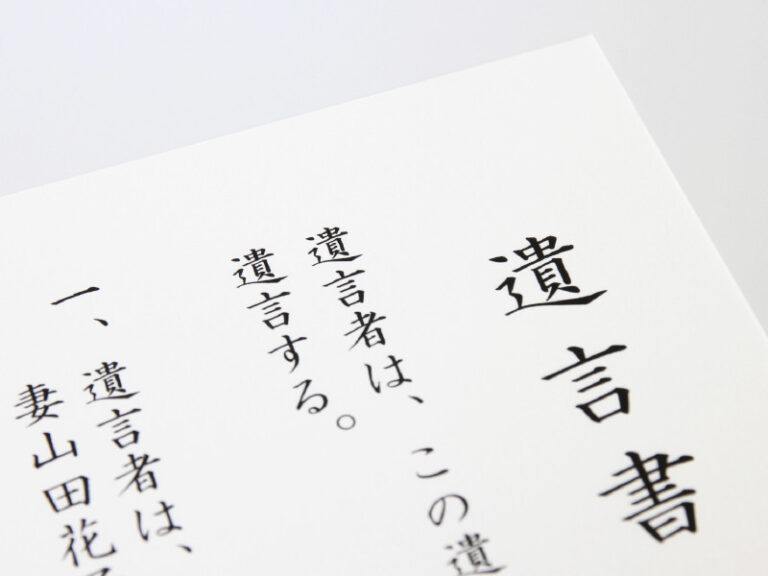 遺言書
遺言者は、この遺
遺言する。
一、遺言者は、
妻山田花